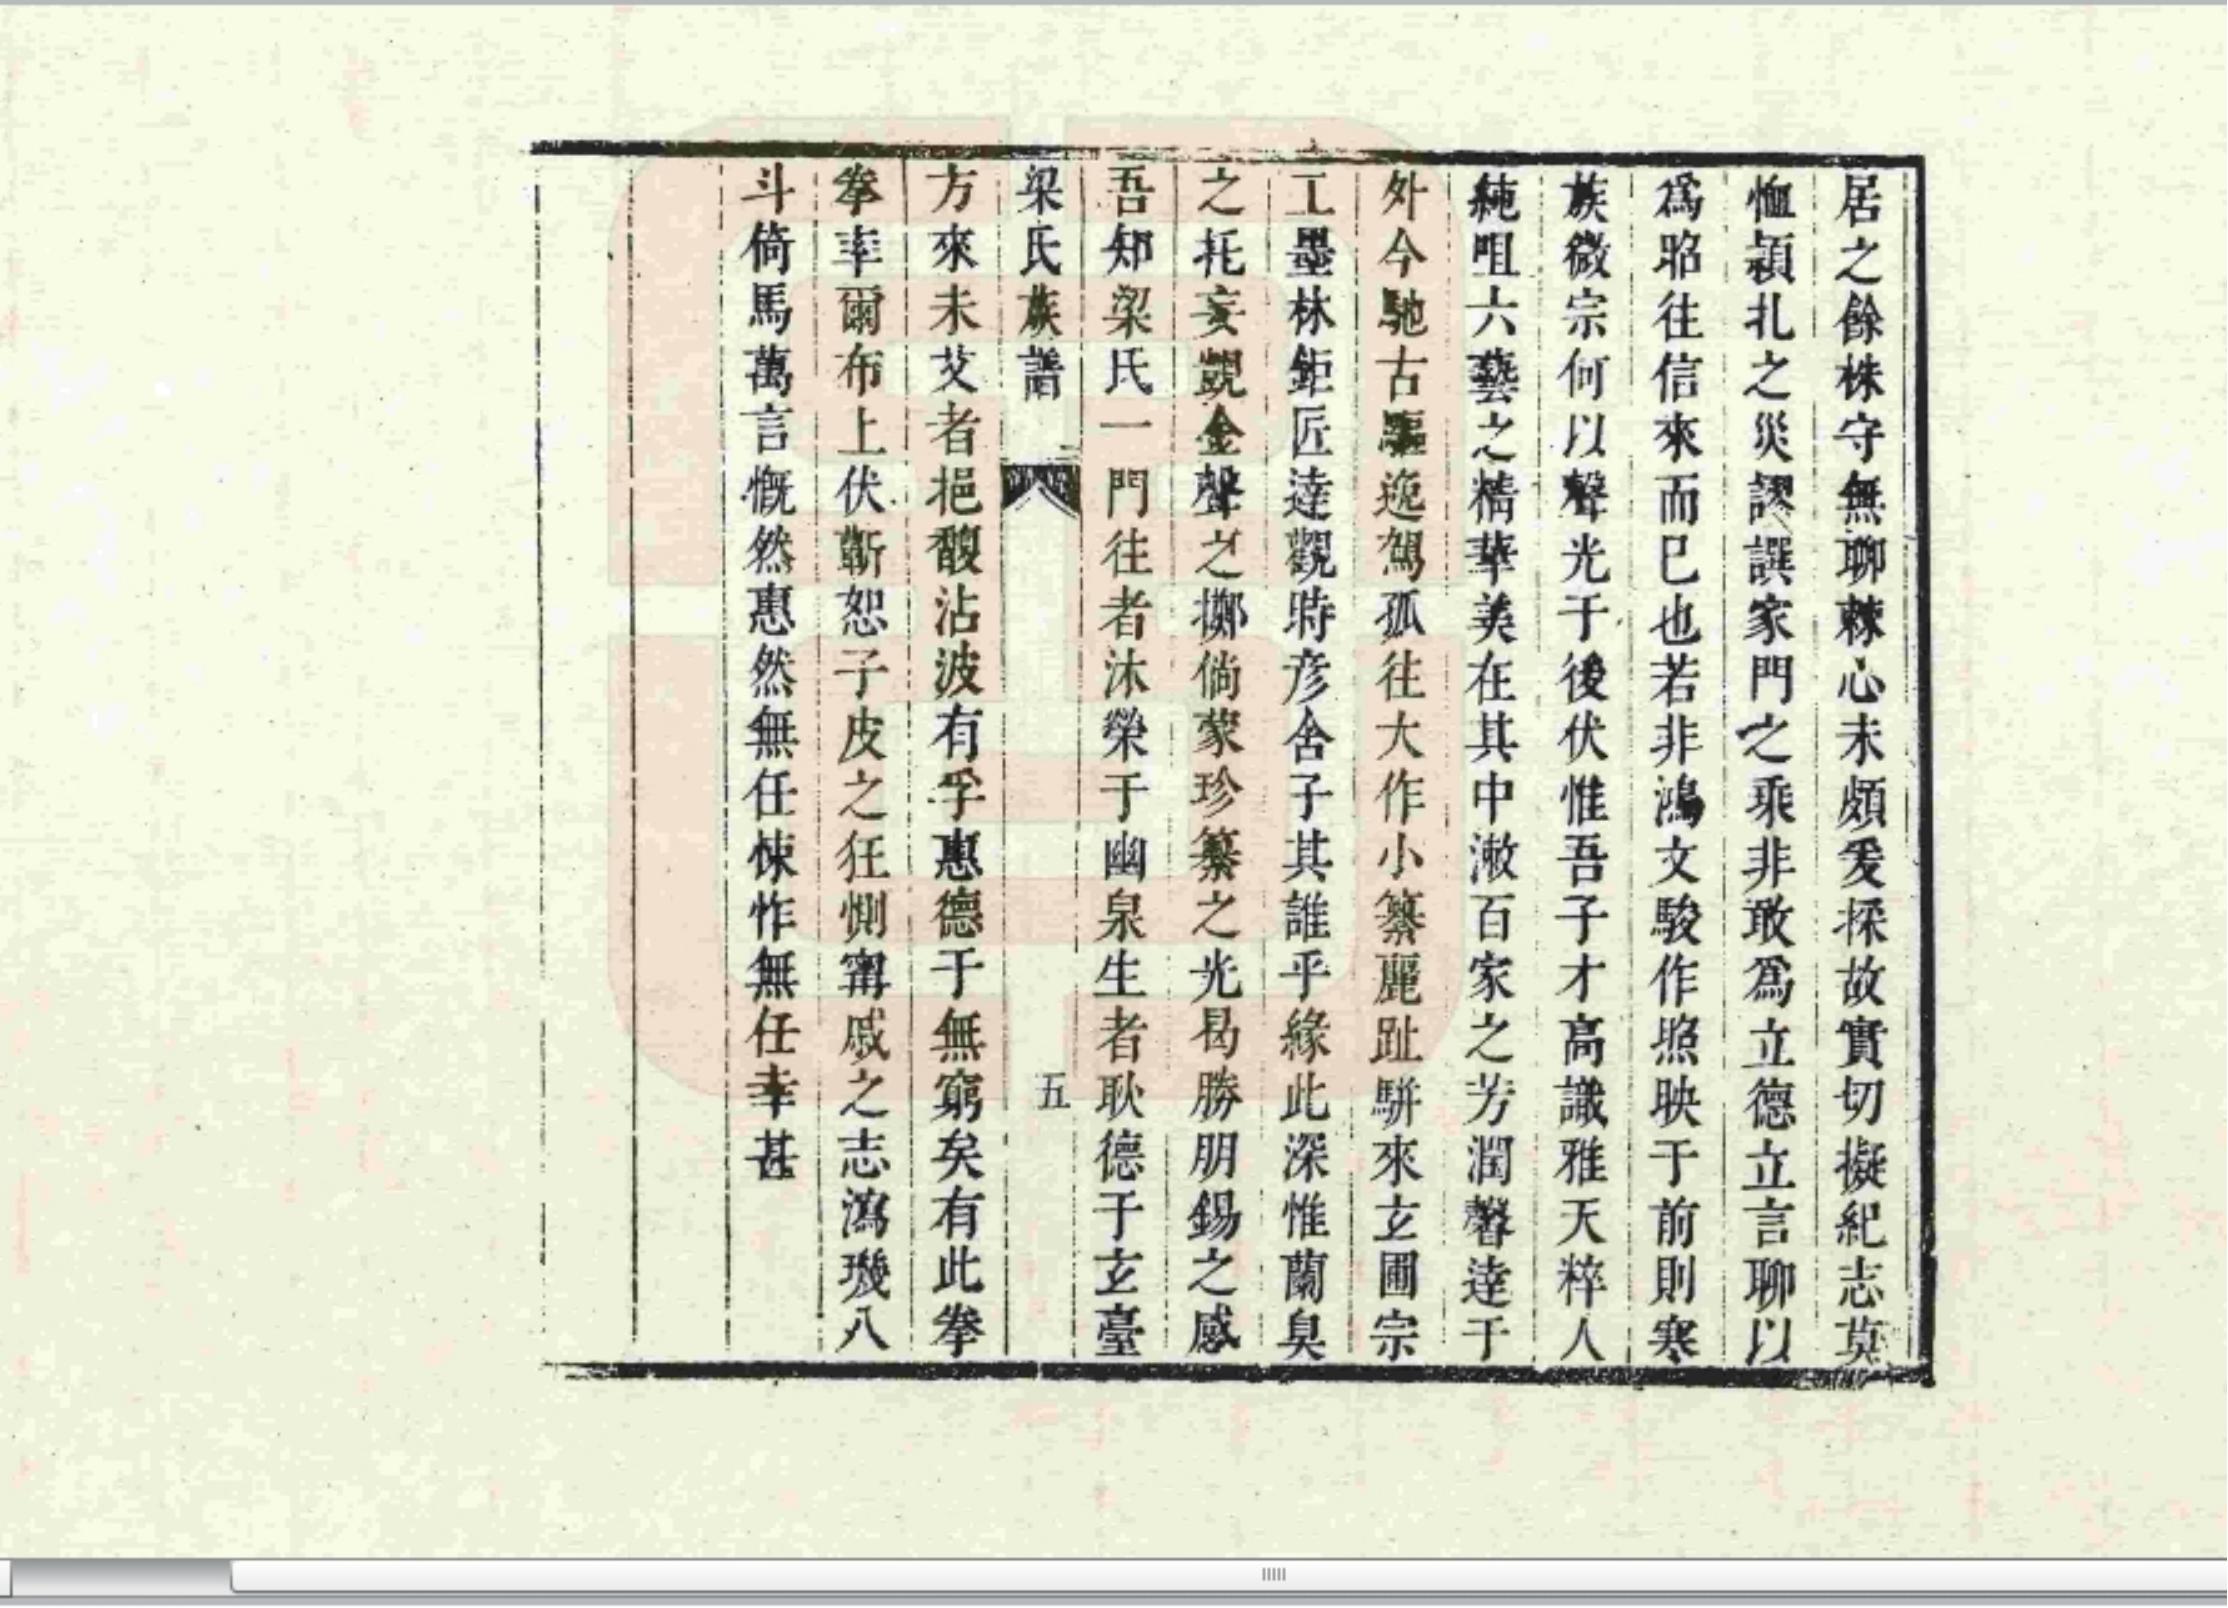 居之餘株守無聊棘心未頗爰採故實切擬紀志莫
恤穎札之災謬譔家門之乘非敢爲立德立言聊以
爲昭往信來而巳也若非鴻文駿作照映于前則寒
族微宗何以聲光于後伏惟吾子才高識雅天粹人
純咀六藝之精華美在其中潄百家之芳潤馨達于
外今馳古驅逸駕孤往大作小纂麗趾駢來玄圃宗
工墨林鉅匠達觀時彥舍子其誰乎緣此深惟蘭臭
之托妄覬金聲之擲倘蒙珍纂之光曷勝朋錫之感
吾知梁氏一門往者沐榮于幽泉生者耿德于玄臺
梁氏族譜 五
方來未艾者挹馥沾波有孚惠德于無窮矣有此拳
拳率爾布上伏蘄恕子皮之狂惻甯戚之志瀉璣八
斗倚馬萬言慨然惠然無任悚怍無任幸甚